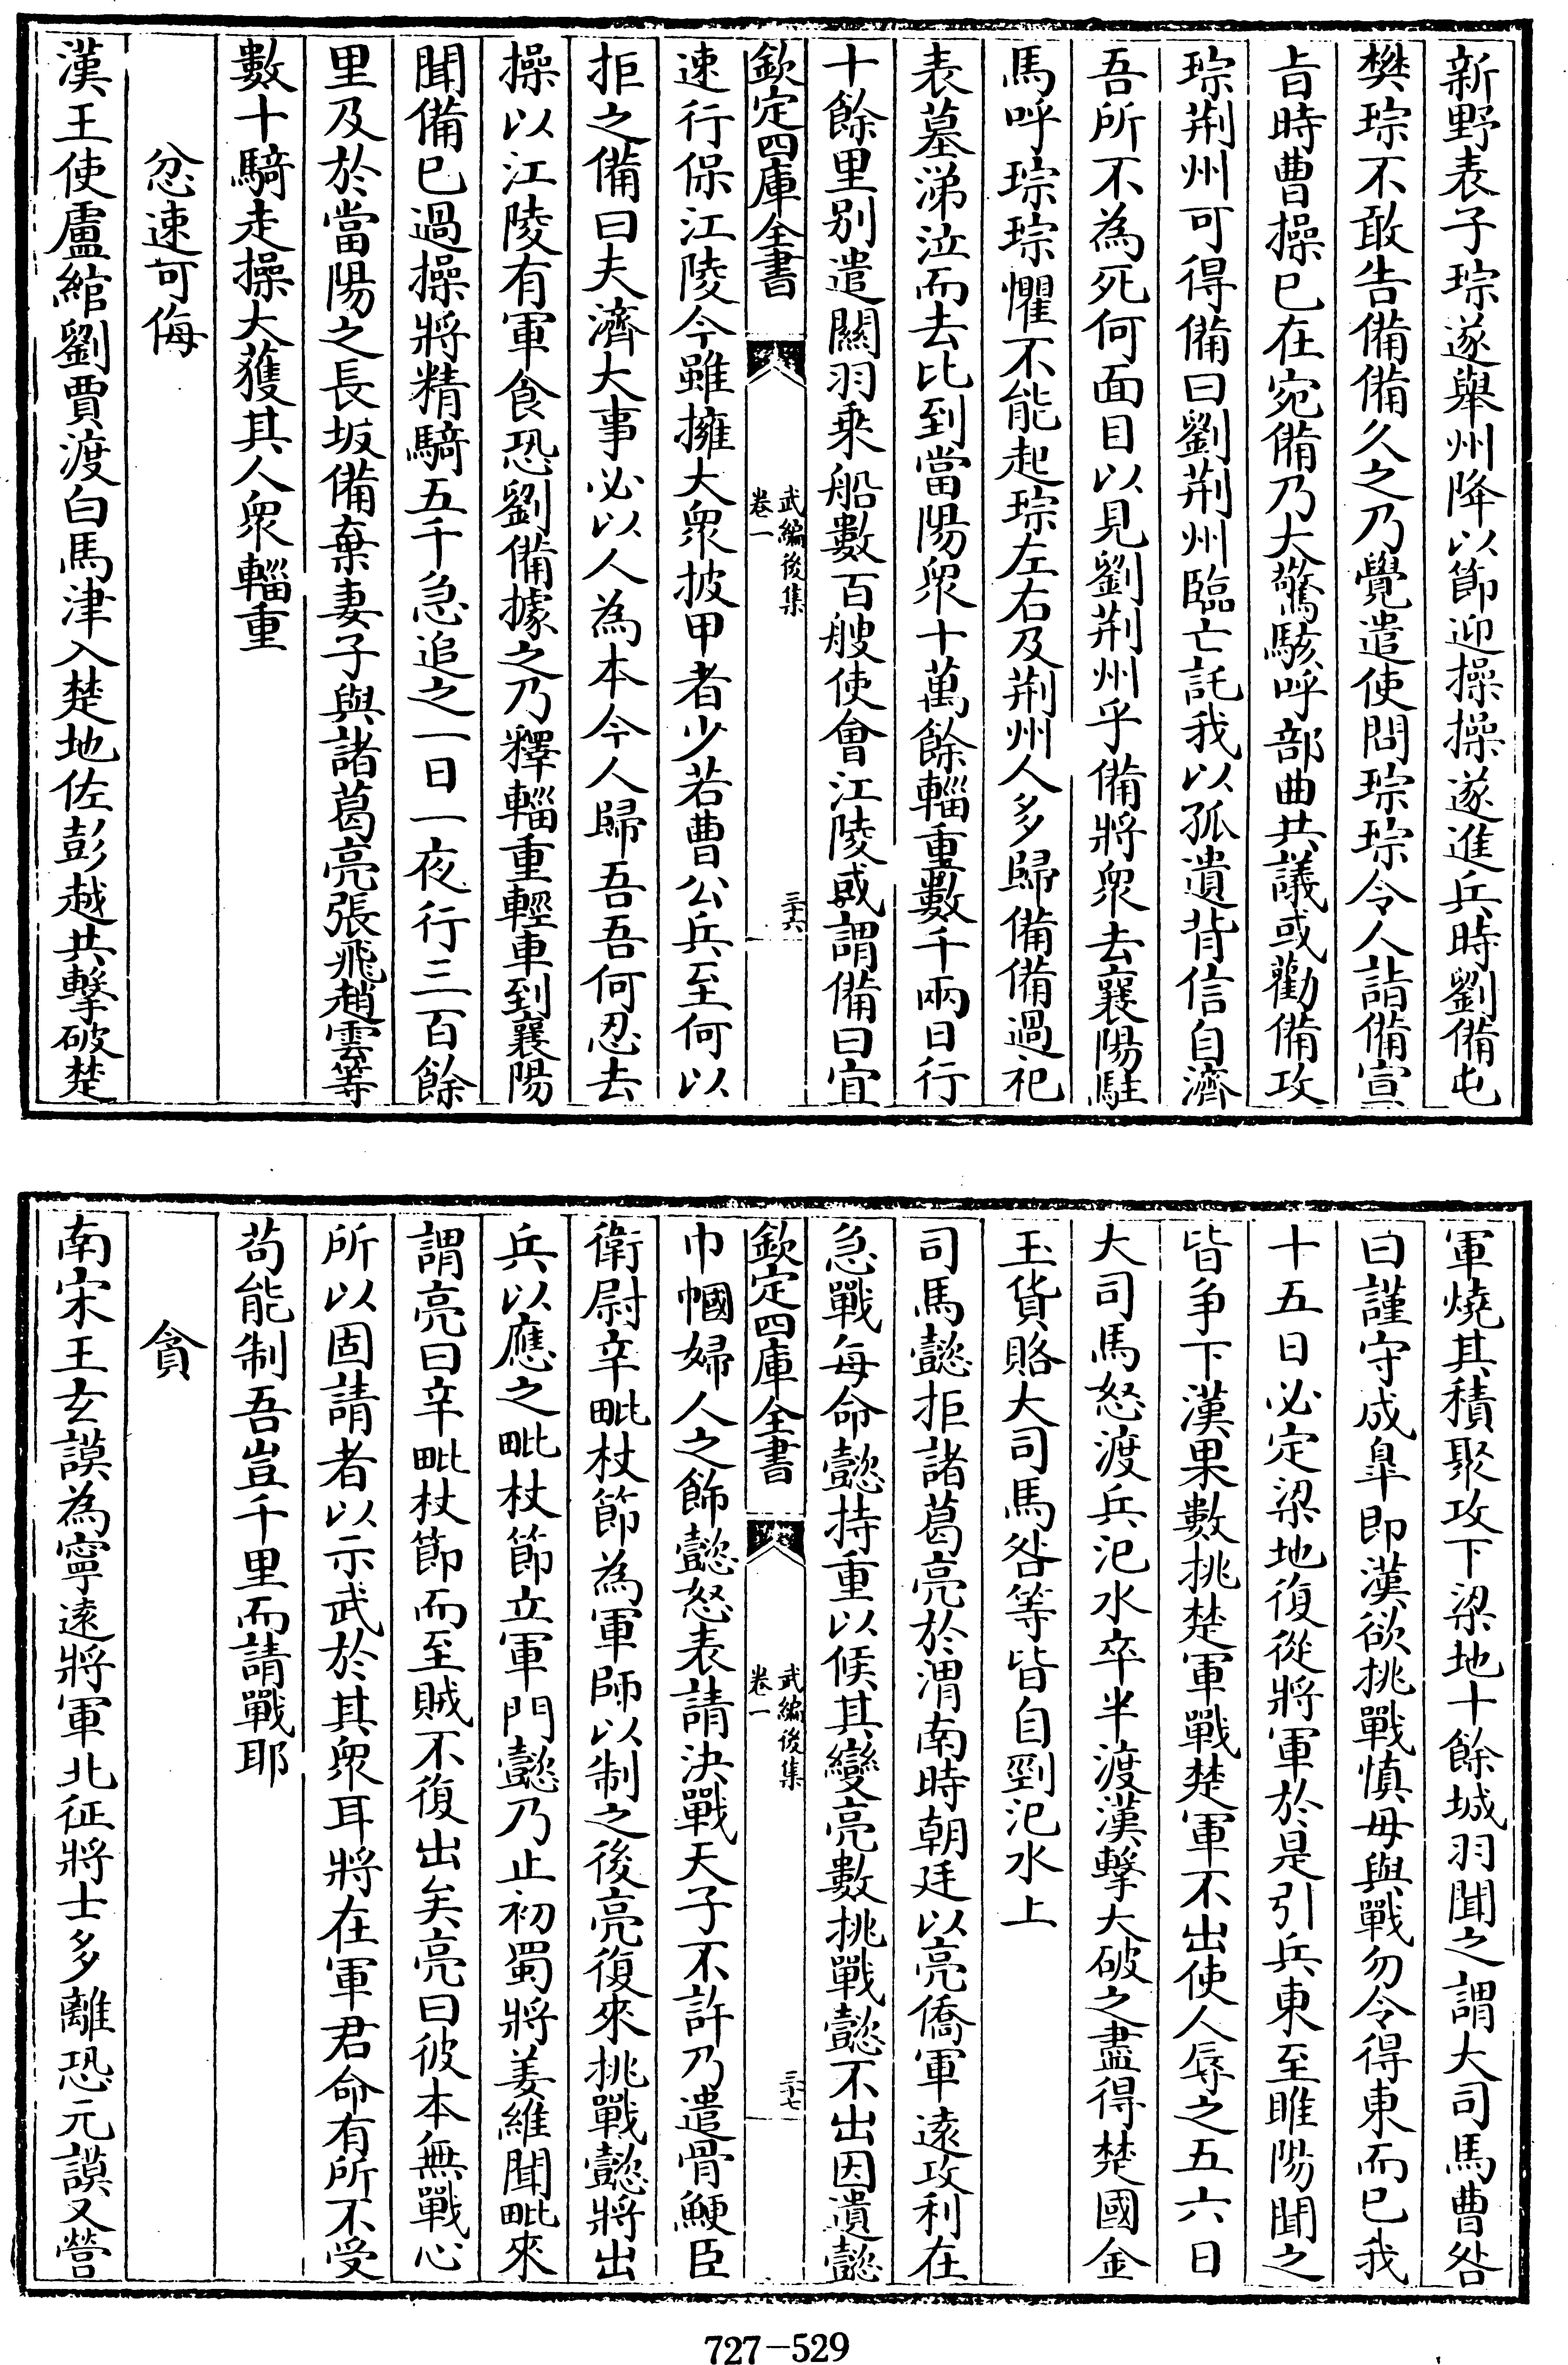 新野表子琮遂舉州降以節迎操操遂進兵時劉備屯
樊琮不敢告備備久之乃覺遣使問琮琮令人詣備宣
旨時曹操已在宛備乃大驚駭呼部曲共議或勸備攻
琮荆州可得備曰劉荆州臨亡託我以孤遺背信自濟
吾所不為死何面目以見劉荆州乎備將衆去襄陽駐
馬呼琮琮懼不能起琮左右及荆州人多歸備備過祀
表墓涕泣而去比到當陽衆十萬餘輜重數千兩日行
十餘里别遣關羽乘船數百艘使會江陵或謂備曰宜
欽定四庫全書 武編後集 卷一 三十六
速行保江陵今雖擁大衆披甲者少若曹公兵至何以
拒之備曰夫濟大事必以人為本今人歸吾吾何忍去
操以江陵有軍食恐劉備據之乃釋輜重輕車到襄陽
聞備已過操將精騎五千急追之一日一夜行三百餘
里及於當陽之長坂備棄妻子與諸葛亮張飛趙雲等
數十騎走操大獲其人衆輜重
忿速可侮
漢王使盧綰劉賈渡白馬津入楚地佐彭越共擊破楚
軍燒其積聚攻下梁地十餘城羽聞之謂大司馬曹咎
曰謹守成臯即漢欲挑戰慎毋與戰勿令得東而已我
十五日必定梁地復從將軍於是引兵東至睢陽聞之
皆爭下漢果數挑楚軍戰楚軍不出使人辱之五六日
大司馬怒渡兵汜水卒半渡漢擊大破之盡得楚國金
玉貨賂大司馬咎等皆自剄汜水上
司馬懿拒諸葛亮於渭南時朝廷以亮僑軍遠攻利在
急戰每命懿持重以候其變亮數挑戰懿不出因遺懿
欽定四庫全書 武編後集 卷一 三十七
巾幗婦人之飾懿怒表請決戰天子不許乃遣骨鯁臣
衛尉辛毗杖節為軍師以制之後亮復來挑戰懿將出
兵以應之毗杖節立軍門懿乃止初蜀將姜維聞毗來
謂亮曰辛毗杖節而至賊不復出矣亮曰彼本無戰心
所以固請者以示武於其衆耳將在軍君命有所不受
苟能制吾豈千里而請戰耶
貪
南宋王玄謨為寧遠將軍北征將士多離恐元謨又營
727-529